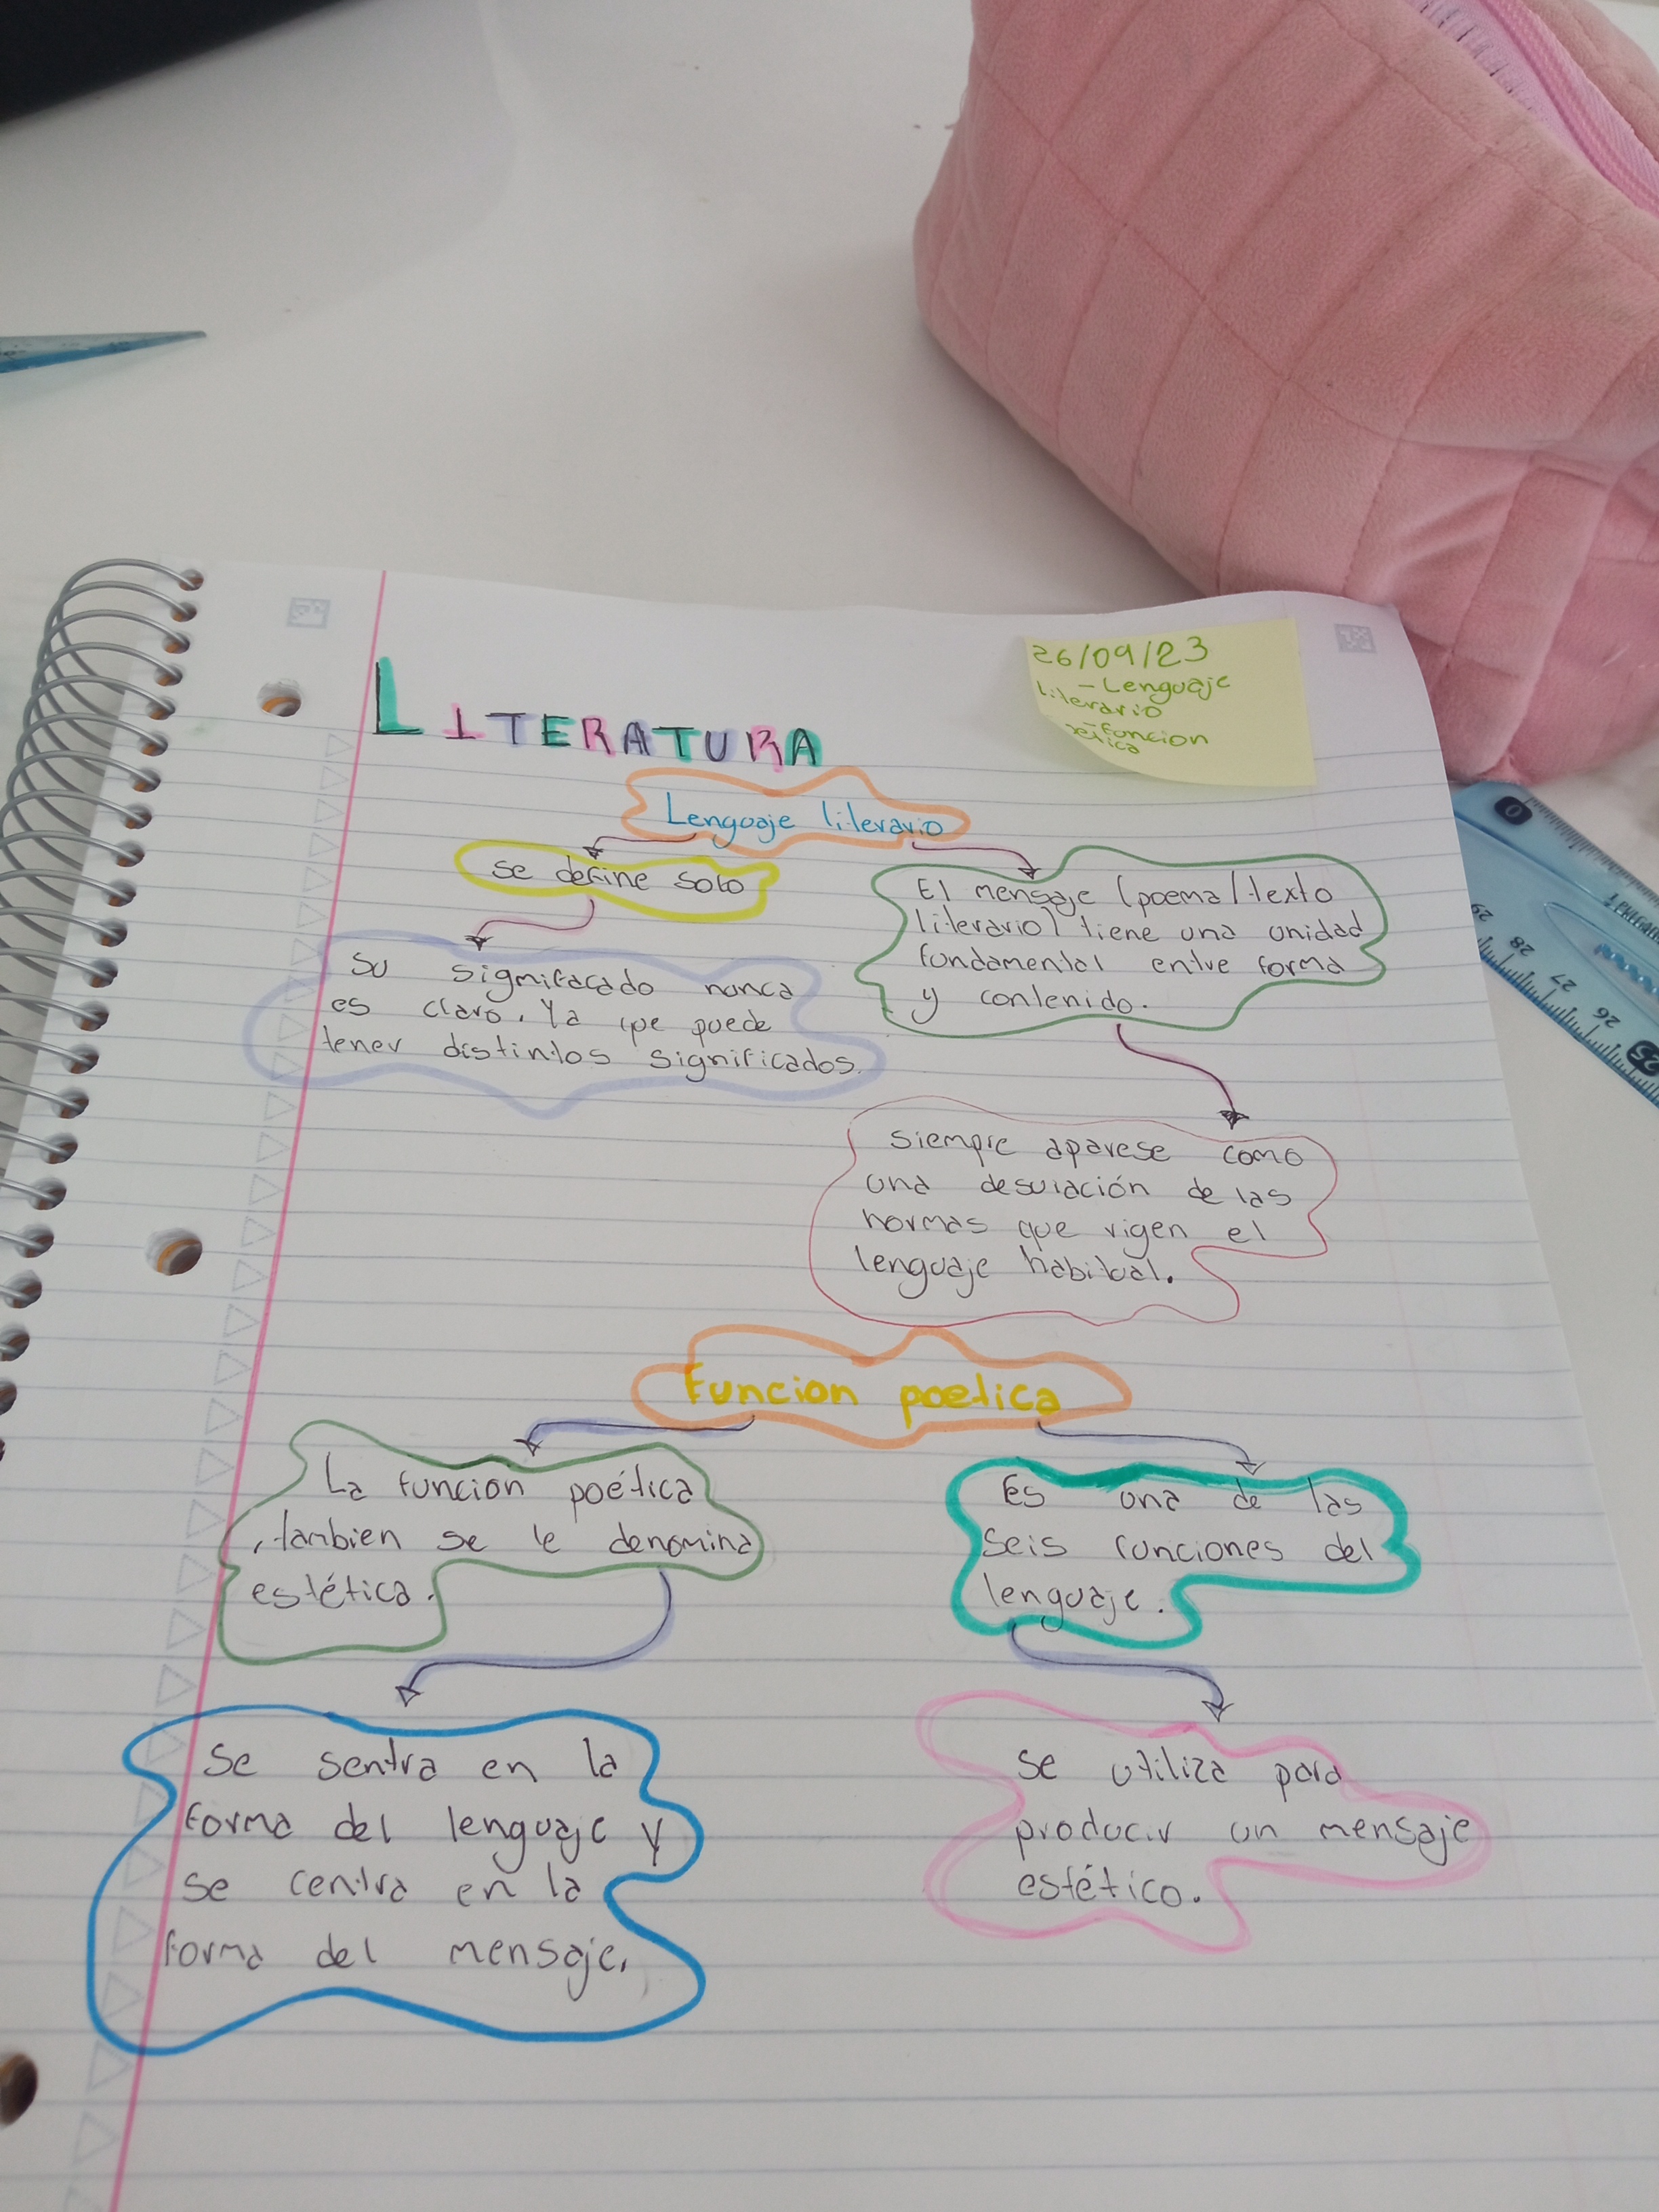 26/09/23
- Lenguaje
literario
- Funcion
LITERATURA
Lenguaje literario
se define solo
El mensaje (poema/texto
literario) tiene una unidad
fundamental entre forma
y contenido.
Su signifacado nunca
es claro. Ya que puede
tener distintos significados.
siempre aparese como
una desviación de las
normas que rigen el
lenguaje habitual.
Funcion poetica
La funcion poética
, tambien se le denomina
estética.
Es una de las
seis funciones del
lenguaje.
Se sentra en la
forma del lenguaje y
se centra en la
forma del mensaje.
se utiliza para
producir un mensaje
estético.
0
29
28
27
26
25